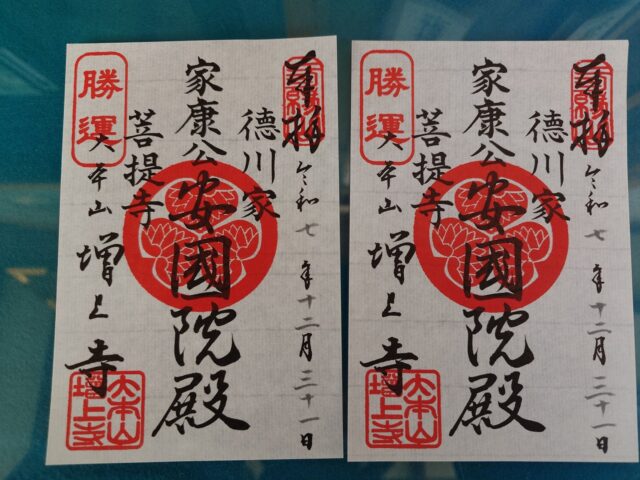 奉拝
令和七年十二月三十一日
徳川家
家康公安國院殿
菩提寺
勝運
大本山増上寺
大本山
増上寺
奉拝
令和七年十二月三十一日
徳川家
家康公安國院殿
菩提寺
勝運
大本山増上寺
大本山
増上寺